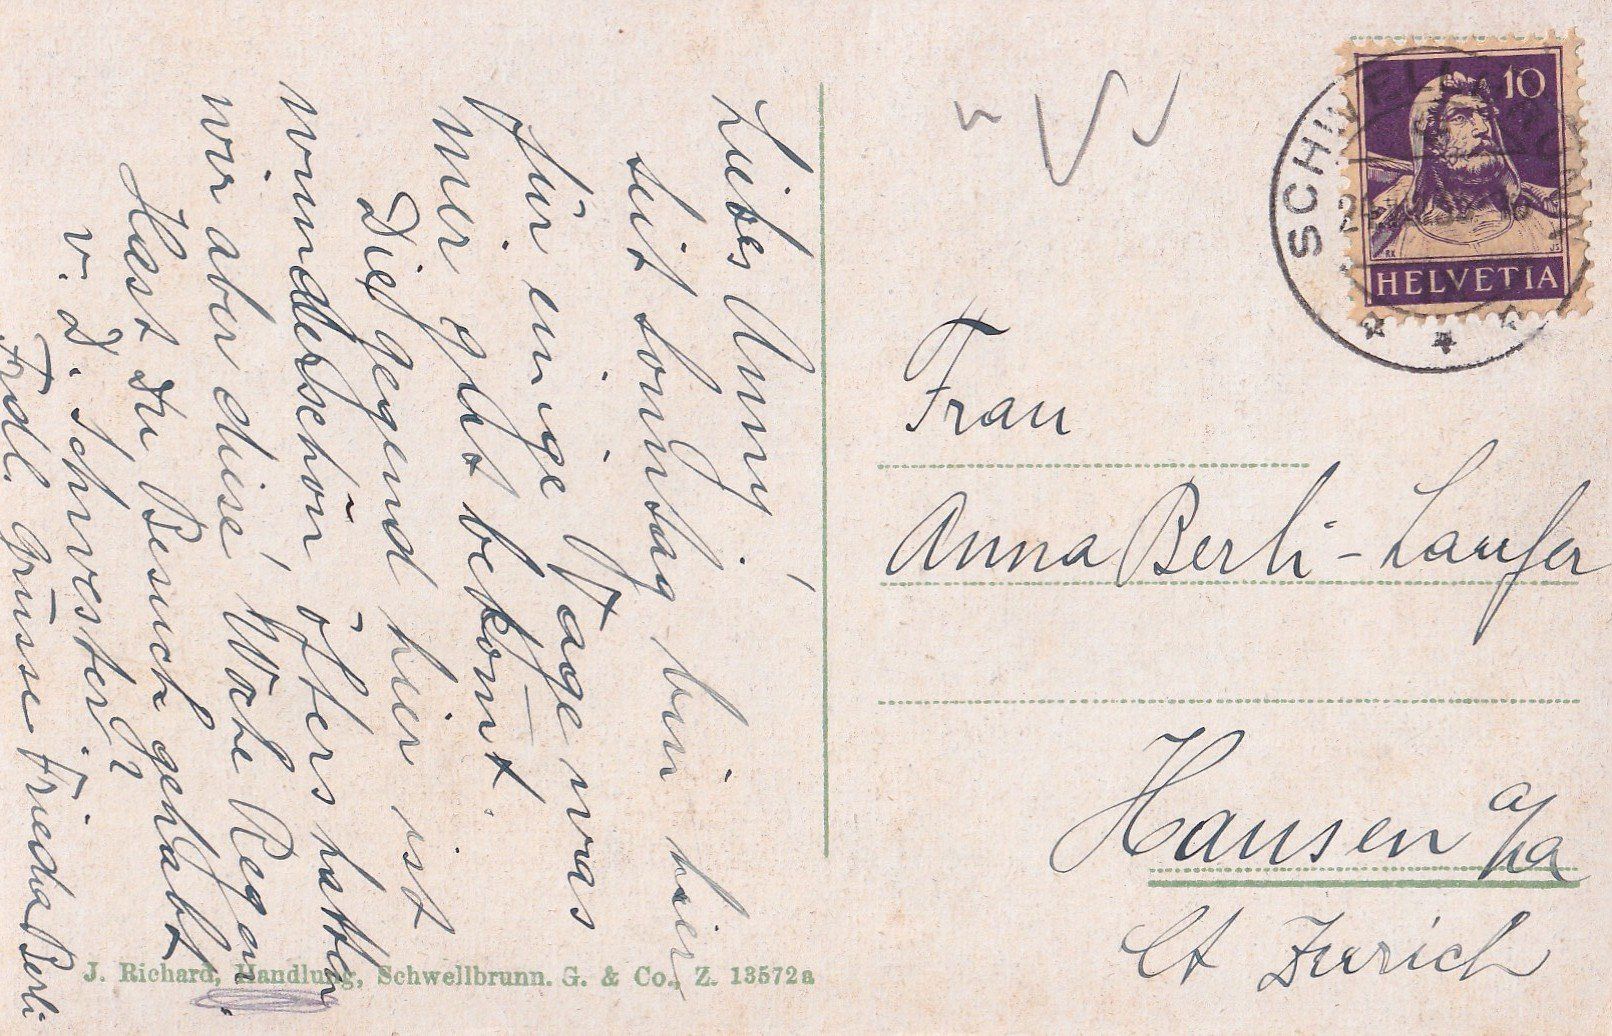 Liebes Anny!
seit sonntag bin hier
für einige Tage was
mir gut bekomt.
Die gegend hier ist
wunderschön, öfters hatten
wir aber diese Woche Regen.
Hast Du Besuch gehabt
v. d. Schwester?
Frdl. Grüsse Frieda Berli
J. Richard, Handlung, Schwellbrunn. G. & Co., Z. 13572a
10
HELVETIA
SCHWELLBRUNN
Frau
Anna Berli-Laufer
Hausen a/A
Ct Zürich